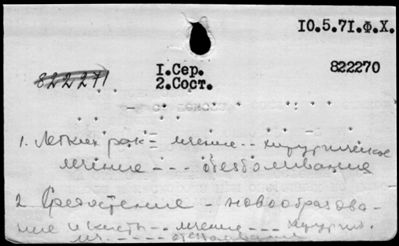 10.5.71.Ф.Х.
822271
1.Сер.
822270
2.Сост.
1. Легких рак - лечение -- хирургическое
лечение --- обезболивание
2. Средостение - новообразова-
ние и кисты -- лечение --- хирургич.
леч. ---- обезболивание